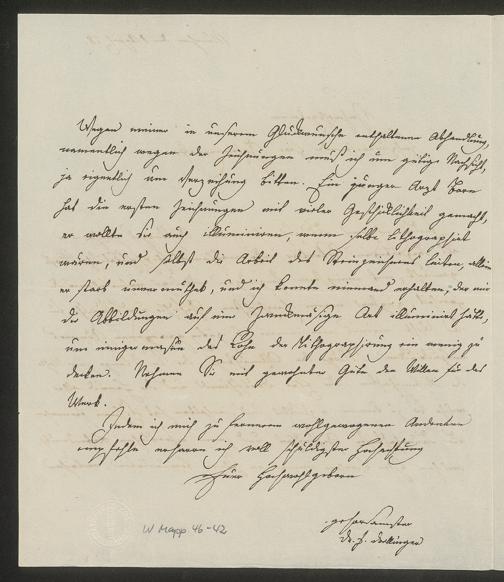 Wegen meiner in unserem Glückwunsche enthaltenen Abhandlung,
namentlich wegen der Zeichnungen muß ich um gütige Nachsicht,
ja eigentlich um Verzeihung bitten. Ein junger Arzt Born
hat die ersten Zeichnungen mit vieler Geschicklichkeit gemacht,
er wollte sie auch illuminiren, wenn selbe lithographirt
wären, und selbst die Arbeit des Steinzeichners leiten, allein
er starb unvermuthet, und ich konnte niemand erhalten, der mir
die Abbildungen auf eine zweckmäsige Art illuminirt hätte,
um einigermassen das Rohe der Lithographirung ein wenig zu
decken. Nehmen Sie mit gewohnter Güte den Willen für das
Werk.
Indem ich mich zu fernerem wohlgewogenen Andenken
empfehle erharre ich voll schuldigster Hochachtung
Euer Hochwohlgeboren
gehorsamster
Dr. Döllinger
W Mapp. 46-42